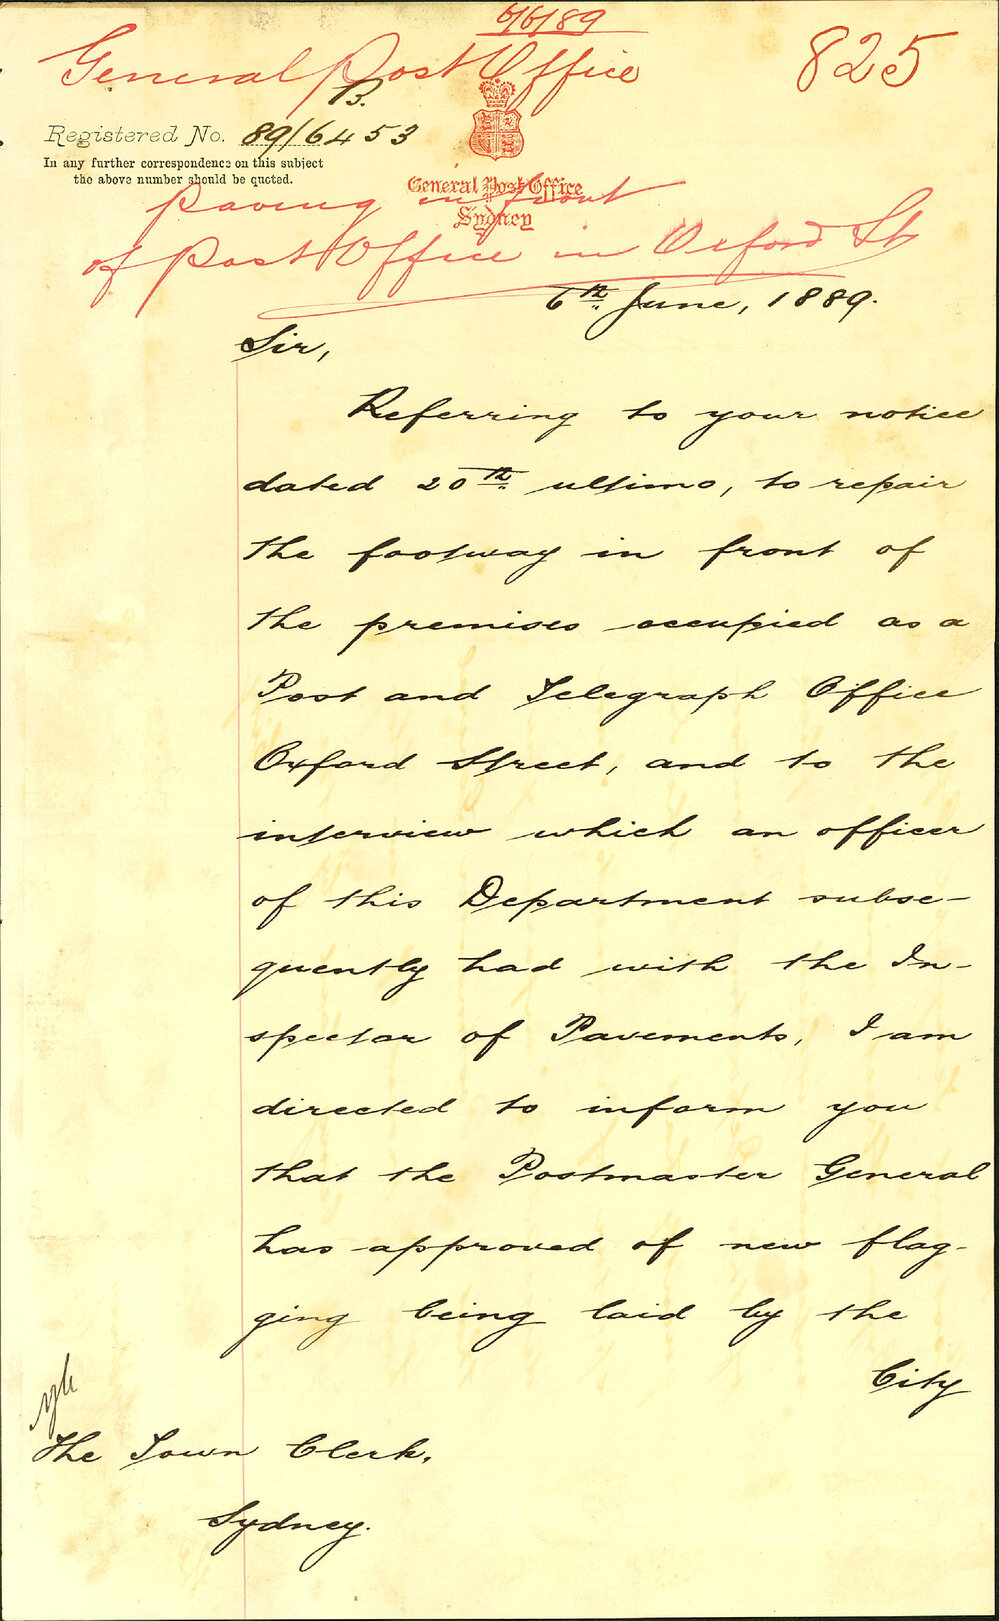 6/6/89
General Post Office
825
B.
Registered No. 89/6453
In any further correspondence on this subject
the above number should be quoted.
General Post Office
Sydney
Paving in front
of Post Office in Oxford St
6th June, 1889.
Sir,
Referring to your notice
dated 20th ultimo, to repair
the footway in front of
the premises occupied as a
Post and Telegraph Office
Oxford Street, and to the
interview which an officer
of this Department subse-
quently had with the In-
spector of Pavements, I am
directed to inform you
that the Postmaster General
has approved of new flag-
ging being laid by the
City
The Town Clerk,
Sydney.